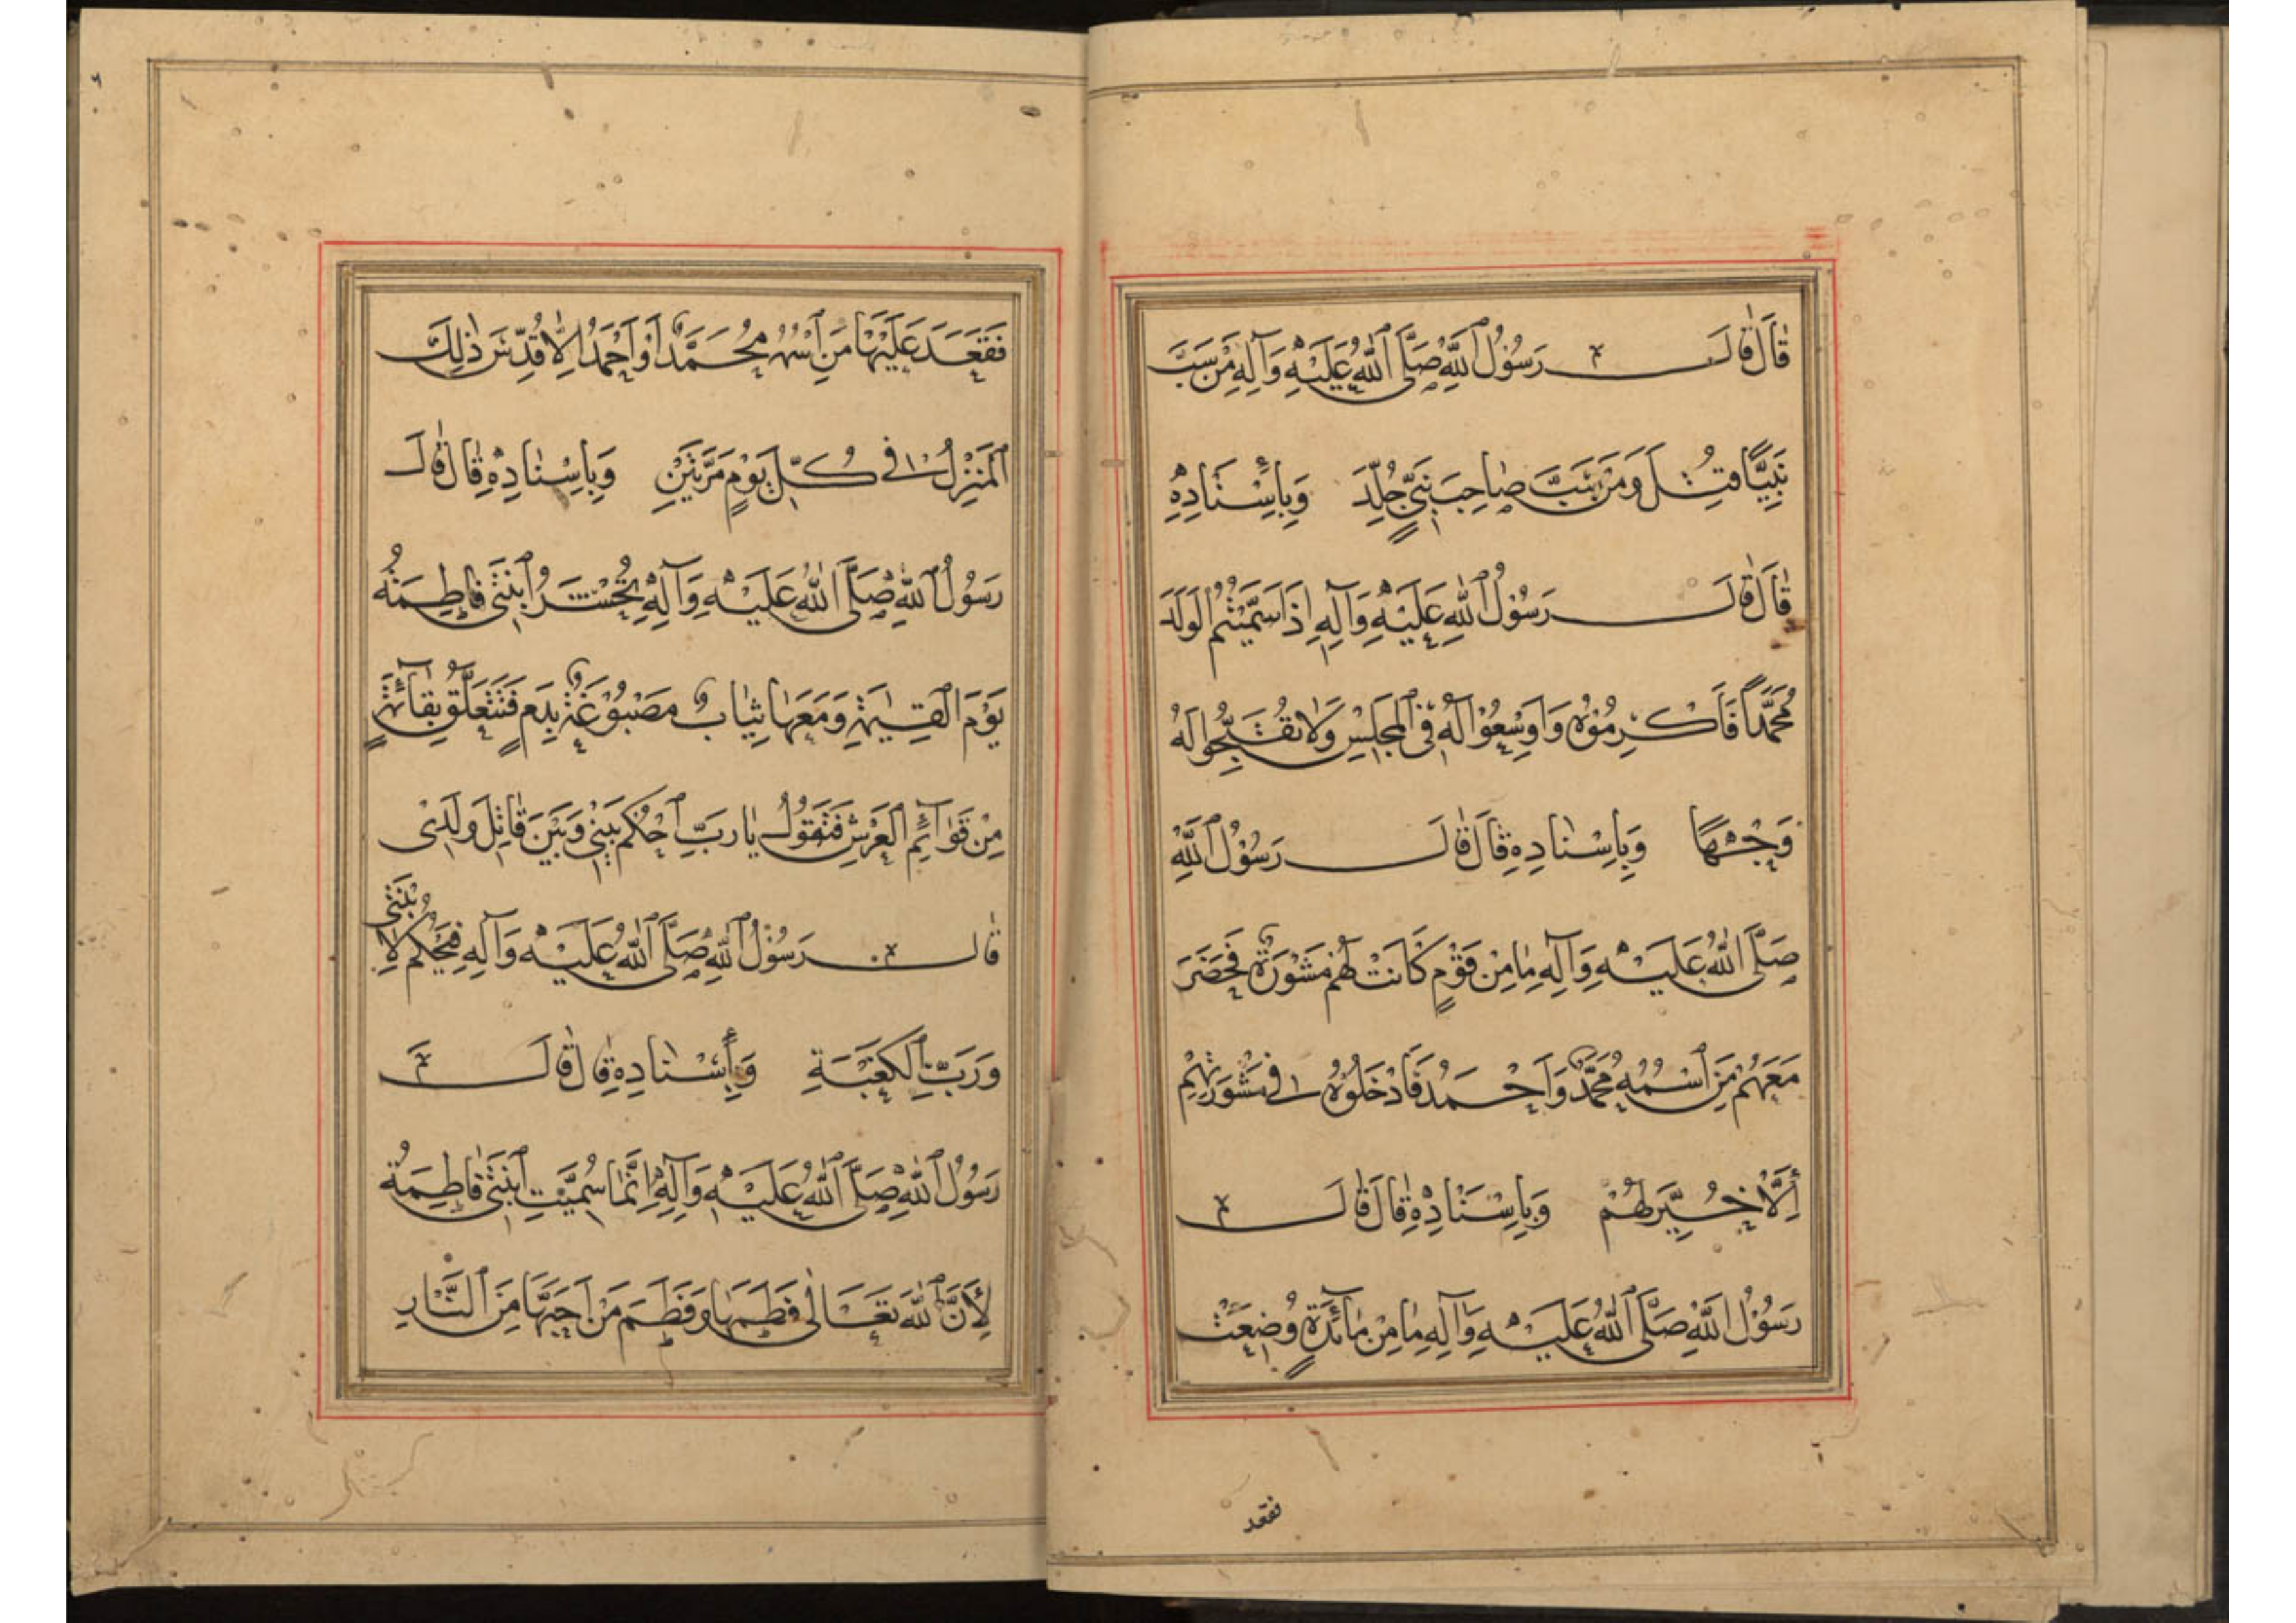 قَالَ قَالَ رَسُوْلُ اللهِ صَلَّى اللهُ عَلَيْهِ وَآلِهِ مَنْ سَبَّ
نَبِيًّا قُتِلَ وَمَنْ سَبَّ صَاحِبَ نَبِيٍّ جُلِّدَ وَبِإِسْنَادِهِ
قَالَ قَالَ رَسُوْلُ اللهِ عَلَيْهِ وَآلِهِ اِذَا سَمَّيْتُمُ الْوَلَدَ
مُحَمَّدًا فَاَكْرِمُوْهُ وَاَوْسِعُوْا لَهُ فِى الْمَجْلِسِ وَلَا تُقَبِّحُوا لَهُ
وَجْهًا وَبِاِسْنَادِهِ قَالَ قَالَ رَسُوْلُ اللهِ
صَلَّى اللهُ عَلَيْهِ وَآلِهِ مَا مِنْ قَوْمٍ كَانَتْ لَهُمْ مَشْوَرَةٌ فَحَضَرَ
مَعَهُمْ مَنِ اسْمُهُ مُحَمَّدٌ وَاَحْمَدُ فَاَدْخَلُوْهُ فِى مَشْوَرَتِهِمْ
اِلَّا خُيِّرَ لَهُمْ وَبِاِسْنَادِهِ قَالَ قَالَ
رَسُوْلُ اللهِ صَلَّى اللهُ عَلَيْهِ وَآلِهِ مَا مِنْ مَآئِدَةٍ وُضِعَتْ
فقعد
فَقَعَدَ عَلَيْهَا مَنِ اسْمُهُ مُحَمَّدٌ اَوْ اَحْمَدُ اِلَّا قُدِّسَ ذٰلِكَ
الْمَنْزِلُ فِى كُلِّ يَوْمٍ مَرَّتَيْنِ وَبِاِسْنَادِهِ قَالَ قَالَ
رَسُوْلُ اللهِ صَلَّى اللهُ عَلَيْهِ وَآلِهِ تُحْشَرُ ابْنَتِى فَاطِمَةُ
يَوْمَ الْقِيٰمَةِ وَمَعَهَا ثِيَابٌ مَصْبُوْغَةٌ بِدَمٍ فَتَتَعَلَّقُ بِقَآئِمَةٍ
مِنْ قَوَآئِمِ الْعَرْشِ فَتَقُوْلُ يَا رَبِّ احْكُمْ بَيْنِى وَبَيْنَ قَاتِلِ وَلَدِىْ
قَالَ رَسُوْلُ اللهِ صَلَّى اللهُ عَلَيْهِ وَآلِهِ فَيُحْكَمُ لِابْنَتِى
وَرَبِّ الْكَعْبَةِ وَبِإِسْنَادِهِ قَالَ قَالَ
رَسُوْلُ اللهِ صَلَّى اللهُ عَلَيْهِ وَآلِهِ اِنَّمَا سُمِّيَتِ ابْنَتِى فَاطِمَةُ
لِأَنَّ اللهَ تَعَالٰى فَطَمَهَا وَفَطَمَ مَنْ اَحَبَّهَا مِنَ النَّارِ